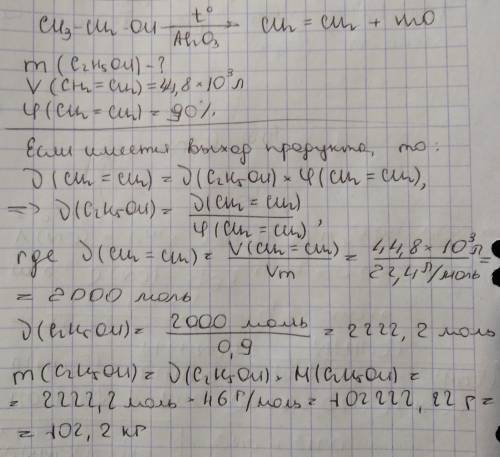 CH₃-CH₂-OH t° / Al₂O₃ → CH₂ = CH₂ + H₂O
m (C₂H₅OH) - ?
V (CH₂ = CH₂) = 41,8 × 10³ л
φ (CH₂ = CH₂) = 90 %.
Если имеется выход продукта, то:
ν (CH₂ = CH₂) = ν (C₂H₅OH) × φ (CH₂ = CH₂),
=> ν (C₂H₅OH) = ν (CH₂ = CH₂) / φ (CH₂ = CH₂) ,
где ν (CH₂ = CH₂) = V (CH₂ = CH₂) / Vm = 44,8 × 10³ л / 22,4 л/моль =
= 2000 моль
ν (C₂H₅OH) = 2000 моль / 0,9 = 2222, 2 моль
m (C₂H₅OH) = ν (C₂H₅OH) × M (C₂H₅OH) =
= 2222,2 моль × 46 г/моль = 102222, 22 г =
= 102, 2 кг